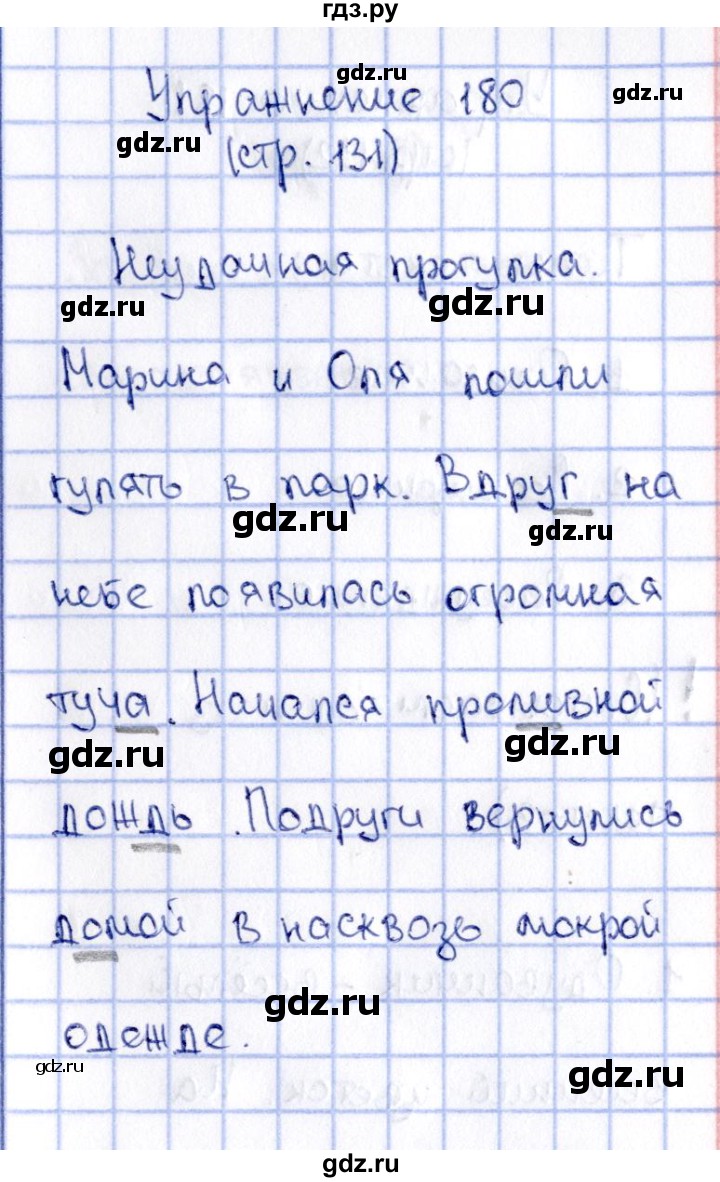 гдз.ру
gdz.ru
gdz.ru
Упражнение 180
gdz.ru
(стр. 131)
Неудачная прогулка.
gdz.ru
gdz.ru
Марина и Оля пошли
гулять в парк. Вдруг на
gdz.ru
gdz.ru
небе появилась огромная
туча. Начался проливной
gdz.ru
gdz.ru
дождь. Подруги вернулись
домой в насквозь мокрой
gdz.ru
одежде.
gdz.ru
gdz.ru
gdz.ru